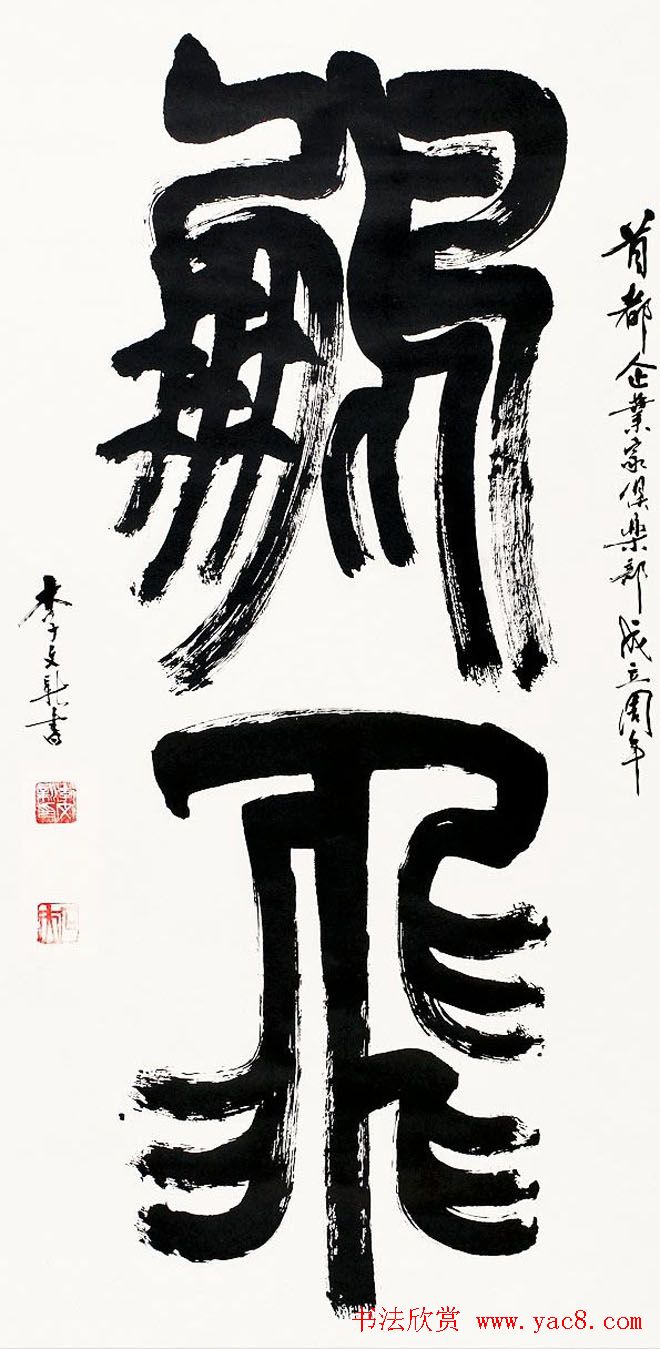 首都企業家俱樂部成立周年
鵬飛
李文新書
书法欣赏 www.yac8.com